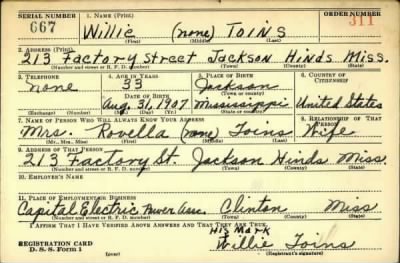 SERIAL NUMBER 1. NAME (Print) ORDER NUMBER
667 Willie (none) Toins 311
(First) (Middle) (Last)
2. ADDRESS (Print)
213 Factory Street Jackson Hinds Miss.
(Number and street or R. F. D. number) (Town) (County) (State)
3. TELEPHONE 4. AGE IN YEARS 5. PLACE OF BIRTH 6. COUNTRY OF CITIZENSHIP
none 33 Jackson
DATE OF BIRTH (Town or county)
Aug. 31, 1907 Mississippi United States
(Exchange) (Number) (Mo.) (Day) (Yr.) (State or country)
7. NAME OF PERSON WHO WILL ALWAYS KNOW YOUR ADDRESS 8. RELATIONSHIP OF THAT PERSON
Mrs. Rovella (none) Toins Wife
(Mr., Mrs., Miss) (First) (Middle) (Last)
9. ADDRESS OF THAT PERSON
213 Factory St. Jackson Hinds Miss.
(Number and street or R. F. D. number) (Town) (County) (State)
10. EMPLOYER'S NAME
11. PLACE OF EMPLOYMENT OR BUSINESS
Capital Electric Power Ass. Clinton Miss
(Number and street or R. F. D. number) (Town) (County) (State)
I AFFIRM THAT I HAVE VERIFIED ABOVE ANSWERS AND THAT THEY ARE TRUE.
His Mark
REGISTRATION CARD Willie Toins
D. S. S. Form 1 (over) (Registrant's signature)